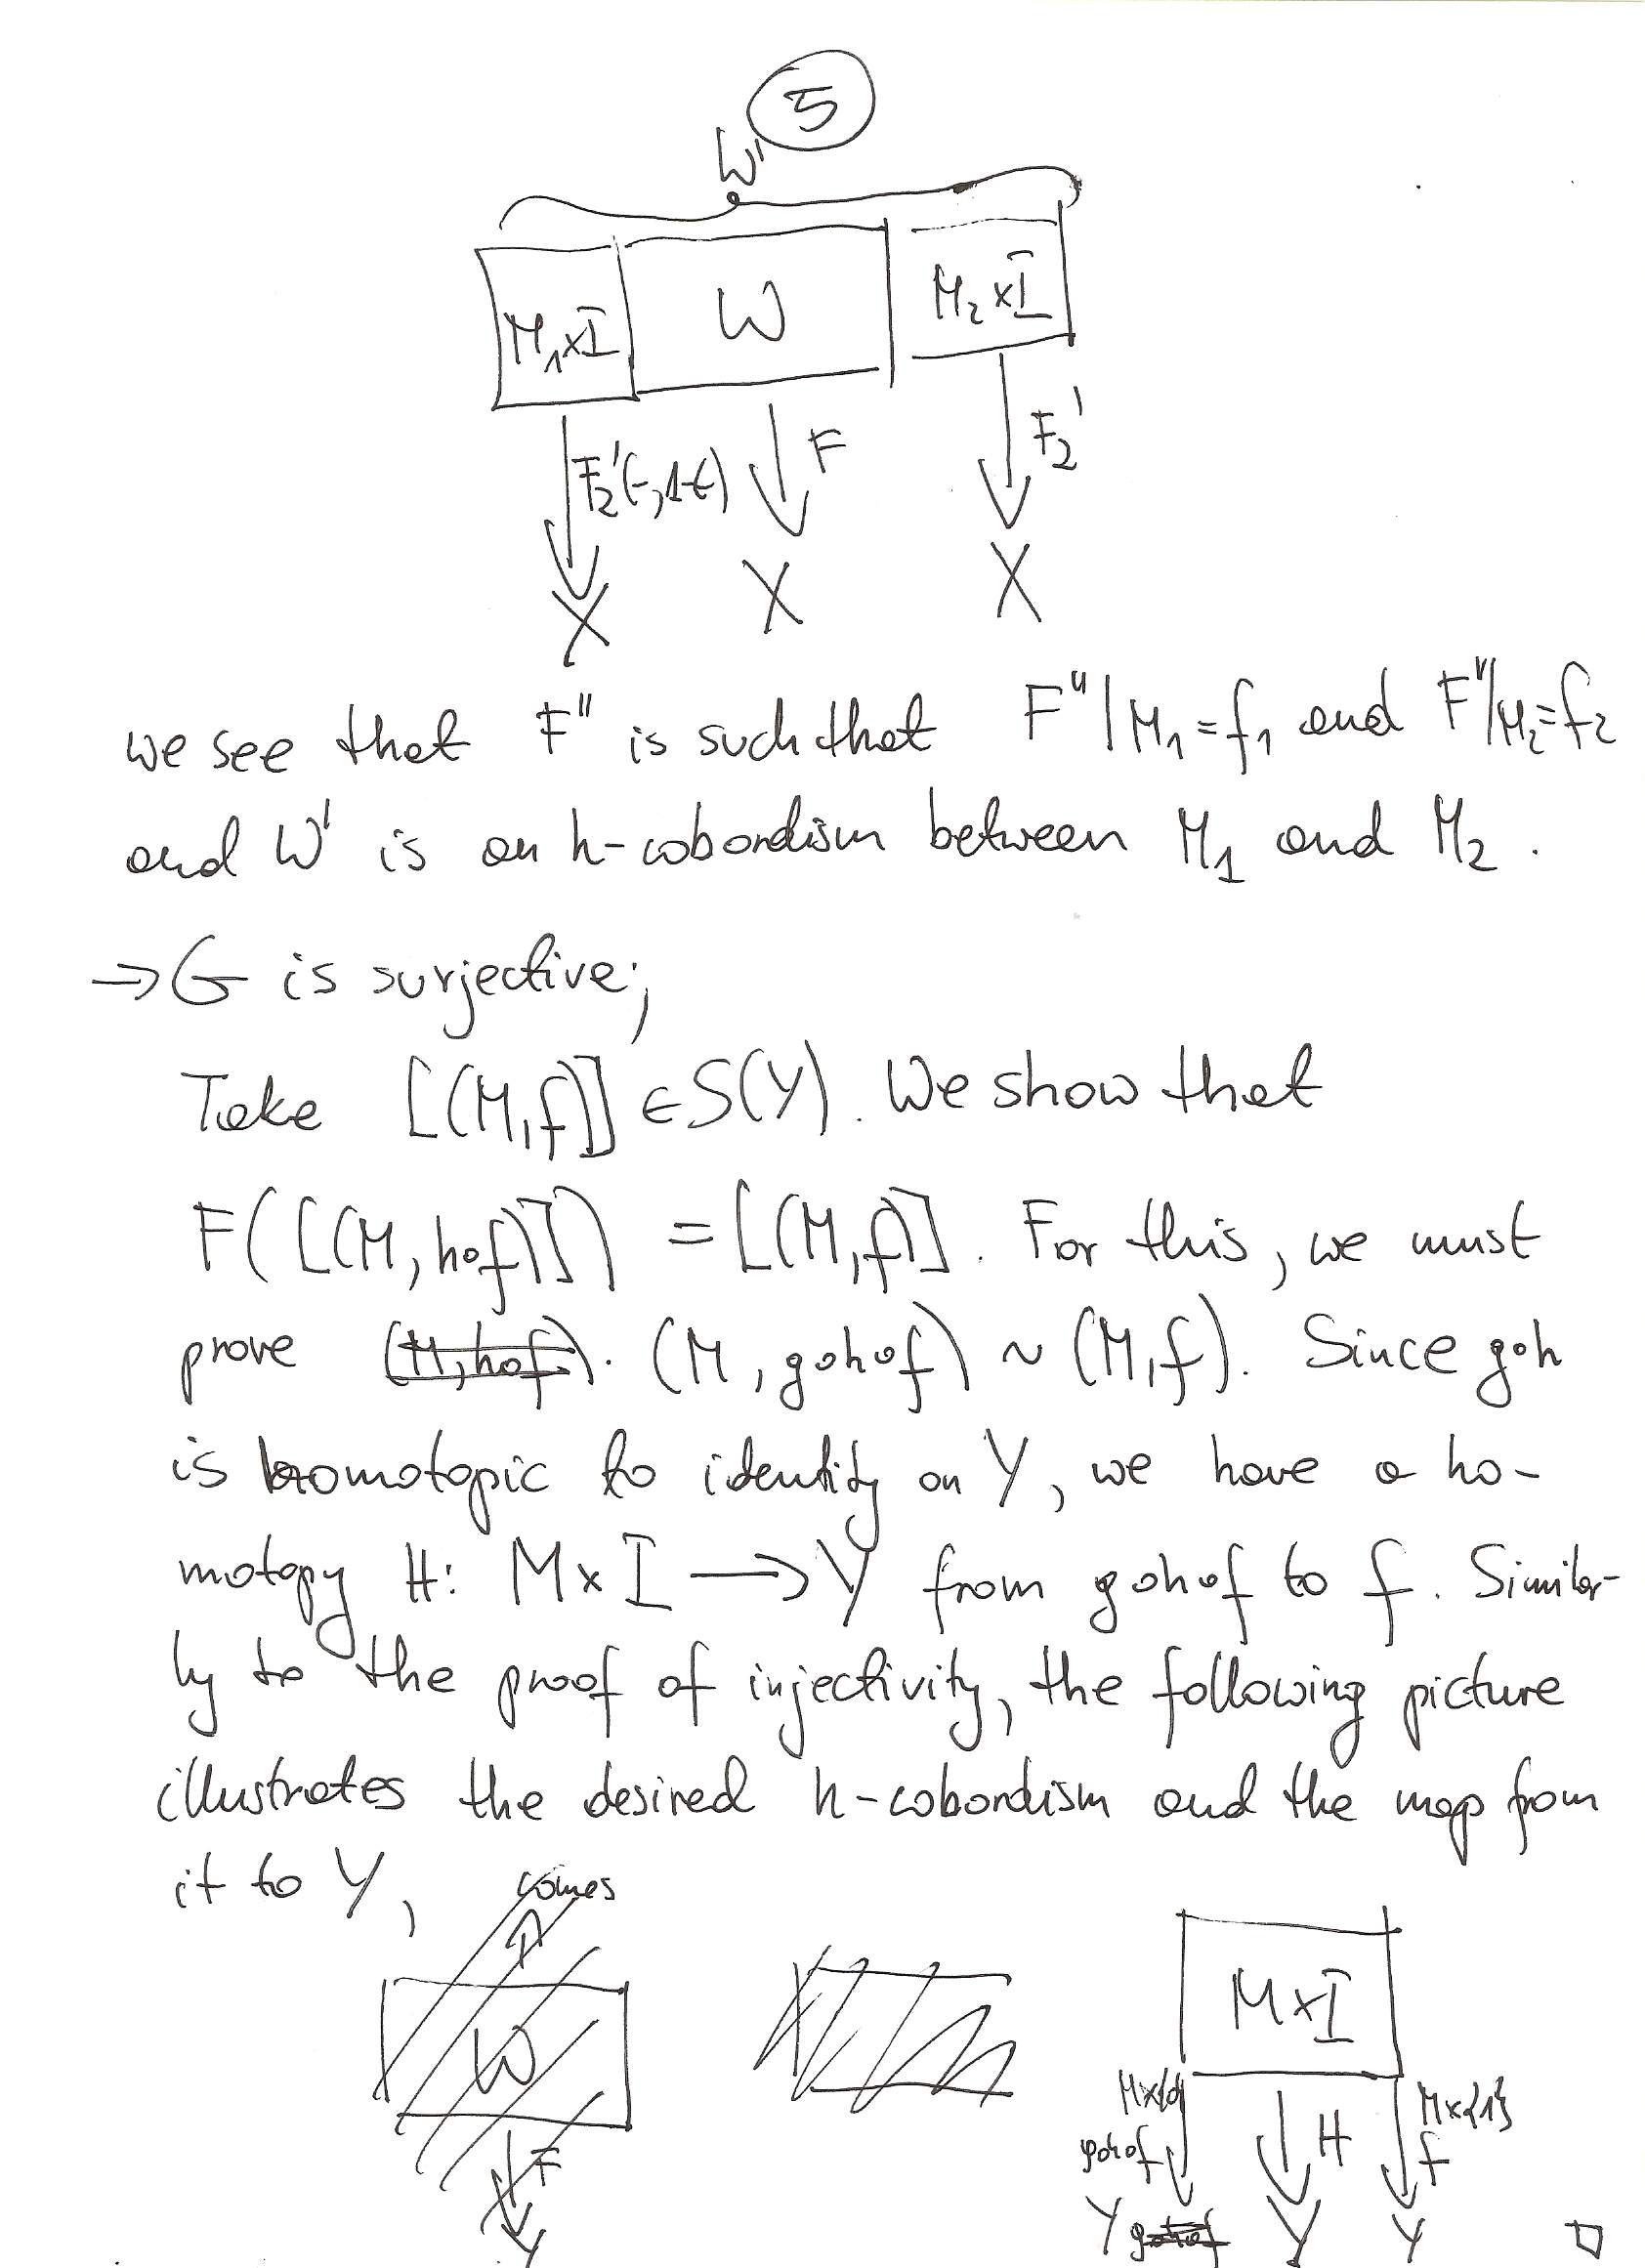 5
W'
M₁×I W M₂×I
F₂'(-,1-t) F F₂'
X X X
we see that F'' is such that F''|M₁=f₁ and F''|M₂=f₂
and W' is an h-cobordism between M₁ and M₂.
→ G is surjective;
Take [(M,f)] ∈ S(Y). We show that
F([(M,h∘f)]) = [(M,f)]. For this, we must
prove (M,h∘f). (M,g∘h∘f) ~ (M,f). Since g∘h
is homotopic to identity on Y, we have a ho-
motopy H: M×I → Y from g∘h∘f to f. Similar-
ly to the proof of injectivity, the following picture
illustrates the desired h-cobordism and the map from
it to Y,
comes
W M×I
M×{0} M×{1}
F g∘h∘f H f
Y Y Y Y